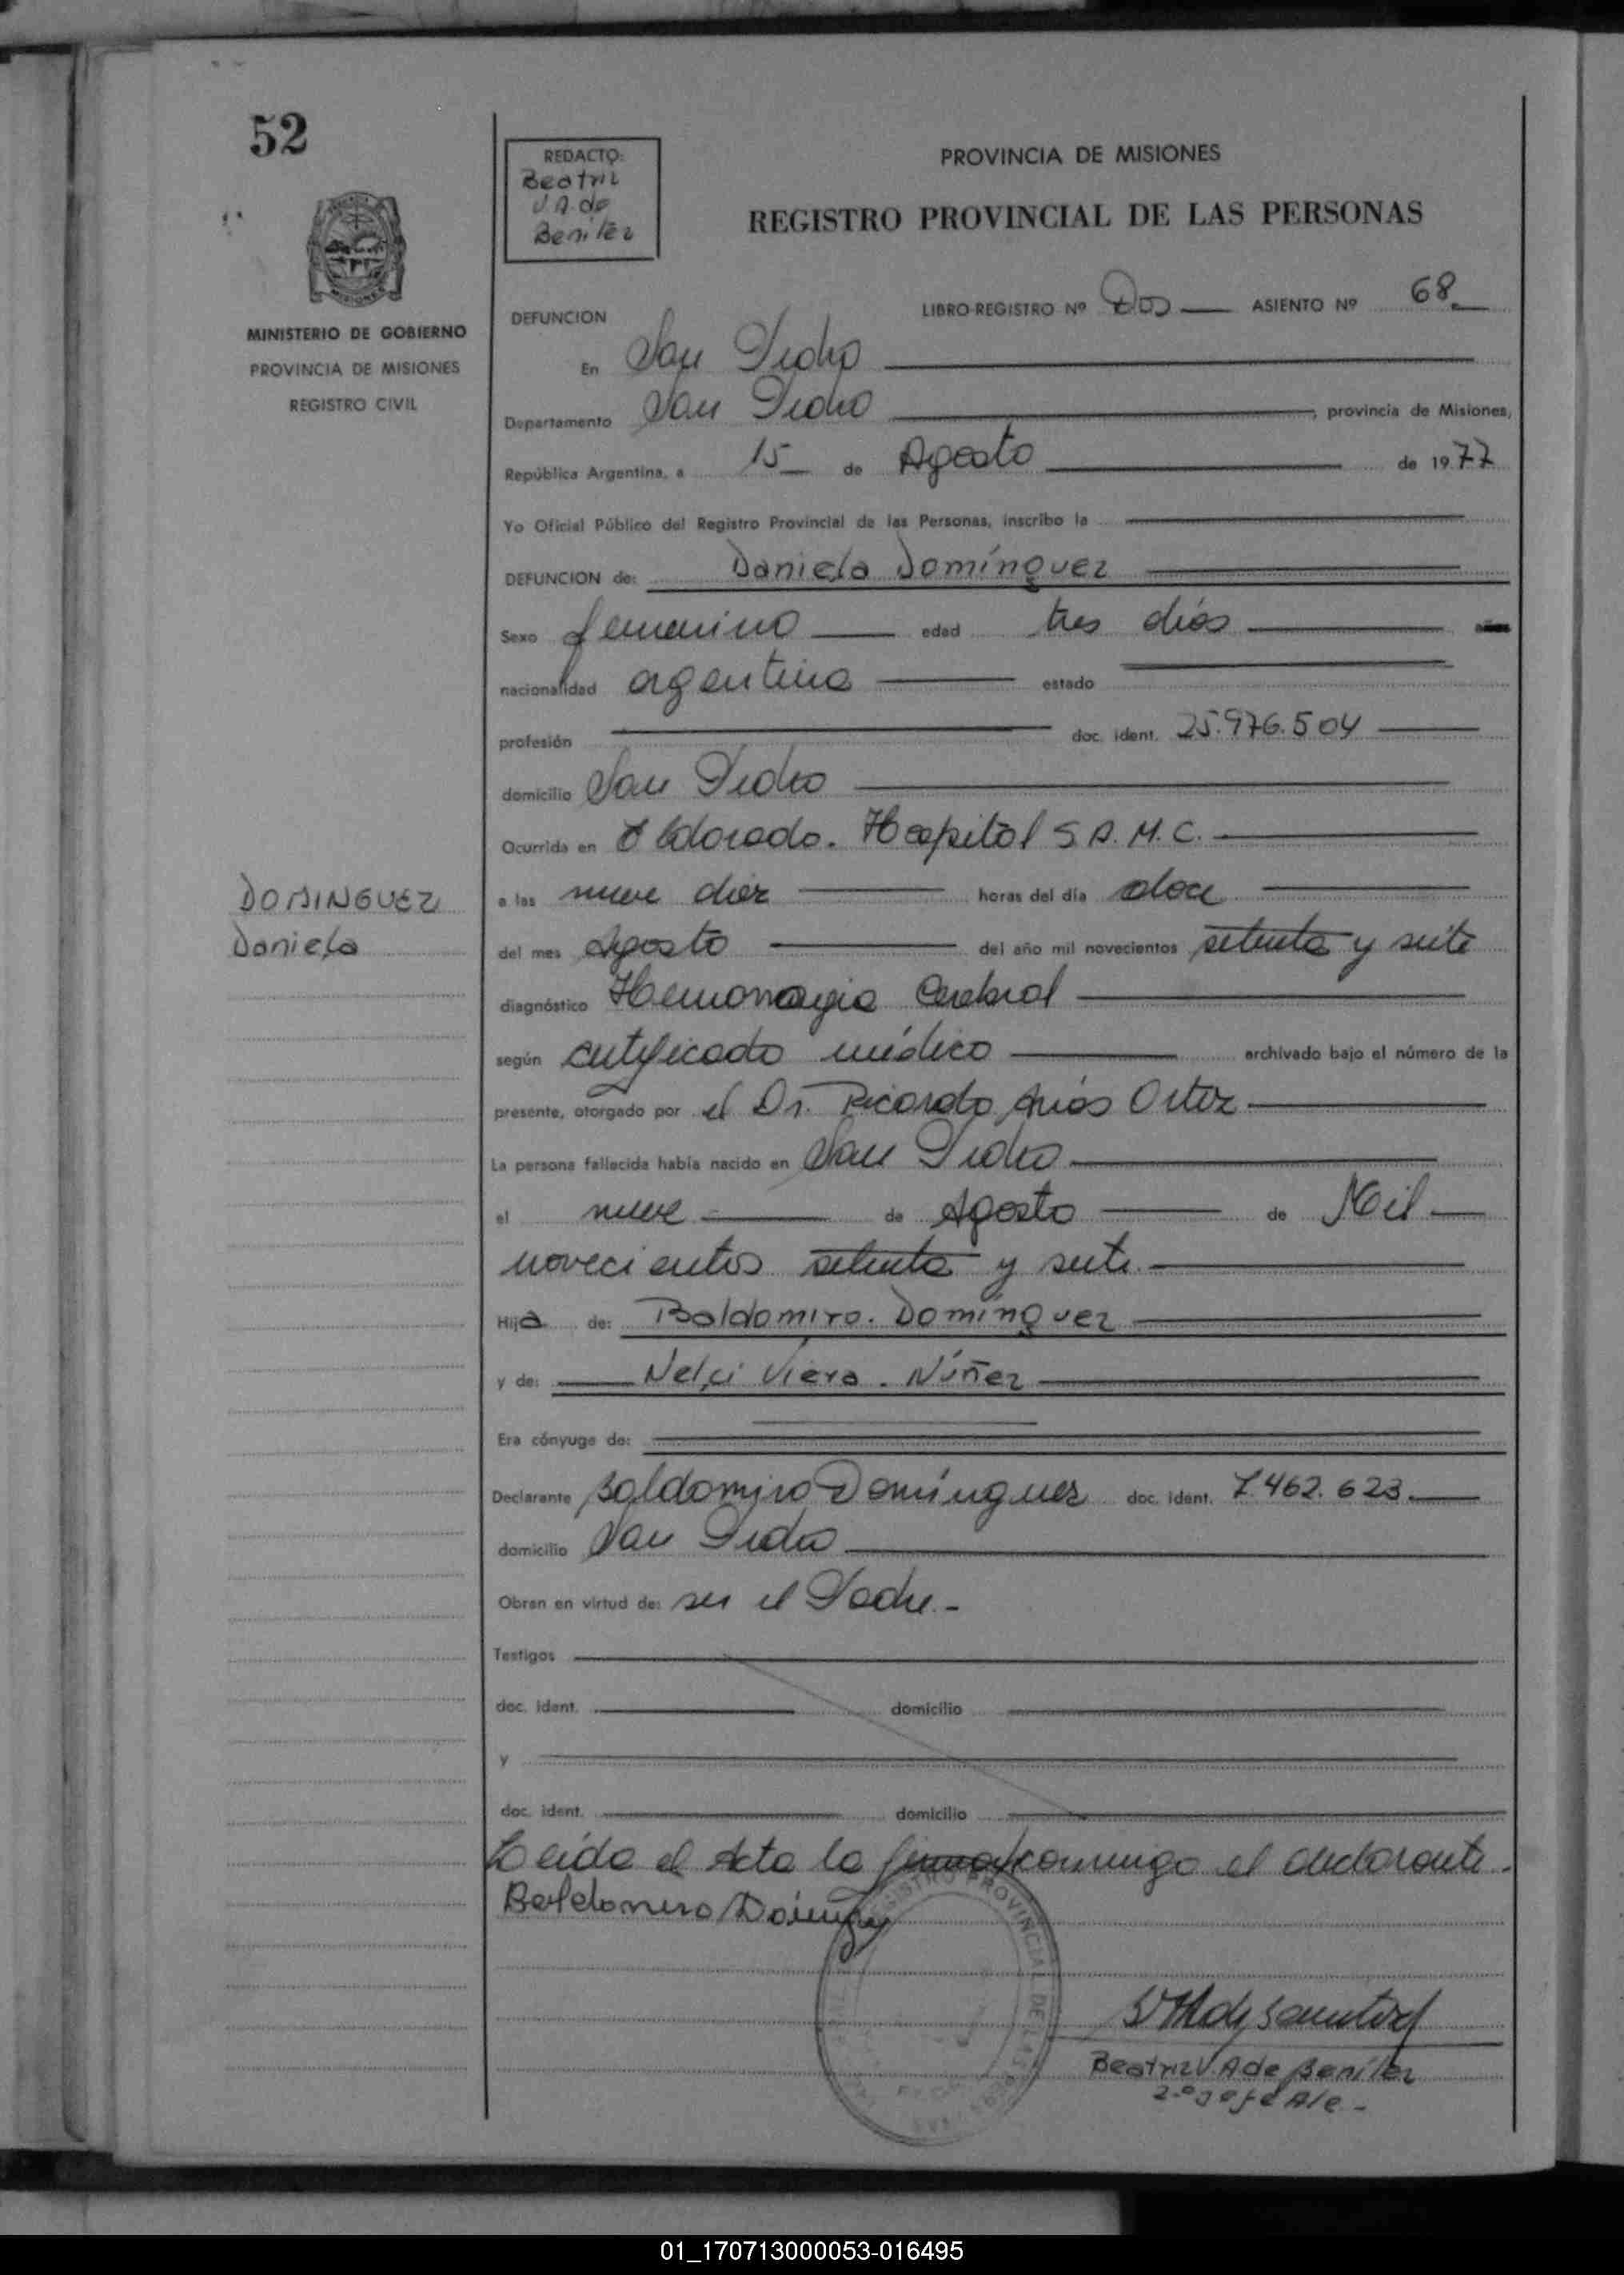 52
REDACTO:
Beatriz
V. A. de
Benítez
PROVINCIA DE MISIONES
REGISTRO PROVINCIAL DE LAS PERSONAS
MISIONES
MINISTERIO DE GOBIERNO
PROVINCIA DE MISIONES
REGISTRO CIVIL
DEFUNCION
LIBRO-REGISTRO Nº Dos ASIENTO Nº 68
En San Pedro
Departamento San Pedro, provincia de Misiones,
República Argentina, a 15 de Agosto de 1977
Yo Oficial Público del Registro Provincial de las Personas, inscribo la
DEFUNCION de: Daniela Domínguez
Sexo femenino edad tres días
nacionalidad argentina estado
profesión doc. ident. 25.976.504
domicilio San Pedro
Ocurrida en Eldorado. Hospital S.A.M.C.
DOMINGUEZ
Daniela
a las nueve diez horas del día doce
del mes Agosto del año mil novecientos setenta y siete
diagnóstico Hemorragia Cerebral
según certificado médico archivado bajo el número de la
presente, otorgado por el Dr. Ricardo Arias Ortiz
La persona fallecida había nacido en San Pedro
el nueve de Agosto de Mil
novecientos setenta y siete
Hija de: Baldomiro. Domínguez
y de: Nelci Viera. Núñez
Era cónyuge de:
Declarante Baldomiro Domínguez doc. ident. 7.462.623.
domicilio San Pedro
Obran en virtud de: ser el Padre.-
Testigos
doc. ident. domicilio
y
doc. ident. domicilio
Leída el Acta la firma conmigo el declarante.
Baldomero
REGISTRO PROVINCIAL DE LAS PERSONAS
Beatriz V. A de Benítez
2º Jefe A/c -
01_170713000053-016495